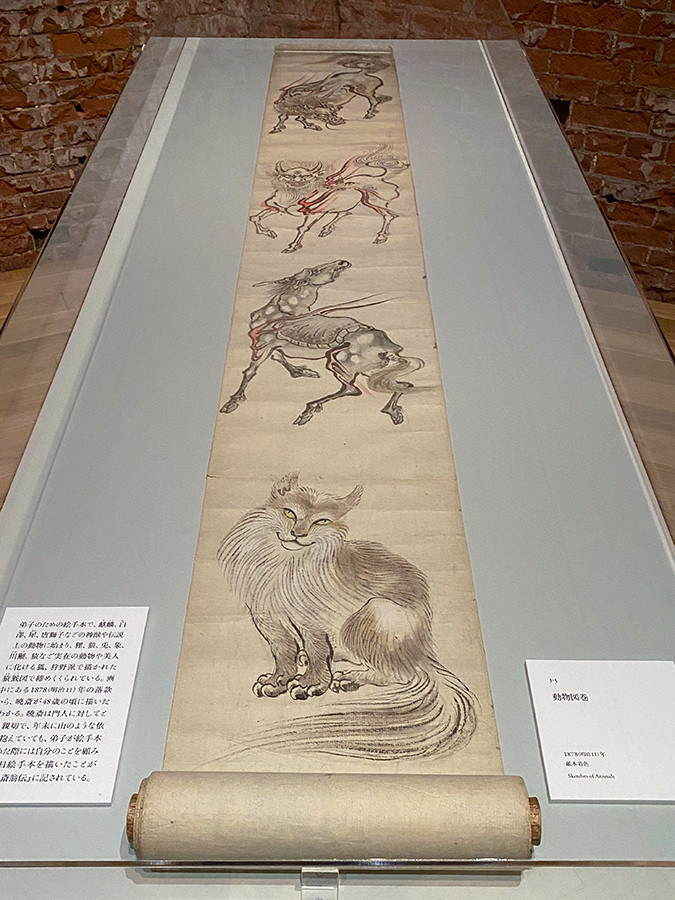 弟子のための絵手本で、麒麟、白
澤、犀、唐獅子などの神獣や伝説
上の動物に始まり、狸、狼、兎、象、
川獺、猿など実在の動物や美人
に化ける狐、狩野派で描かれた
猿猴図で締めくくられている。画
中にある1878(明治11)年の落款
から、暁斎が48歳の頃に描いた
わかる。暁斎は門人に対してと
親切で、年末に山のような依
抱えていても、弟子が絵手本
めた際には自分のことを顧み
日絵手本を描いたことが
斎翁伝』に記されている。
1-5
動物図巻
1878(明治11)年
紙本着色
Sketches of Animals